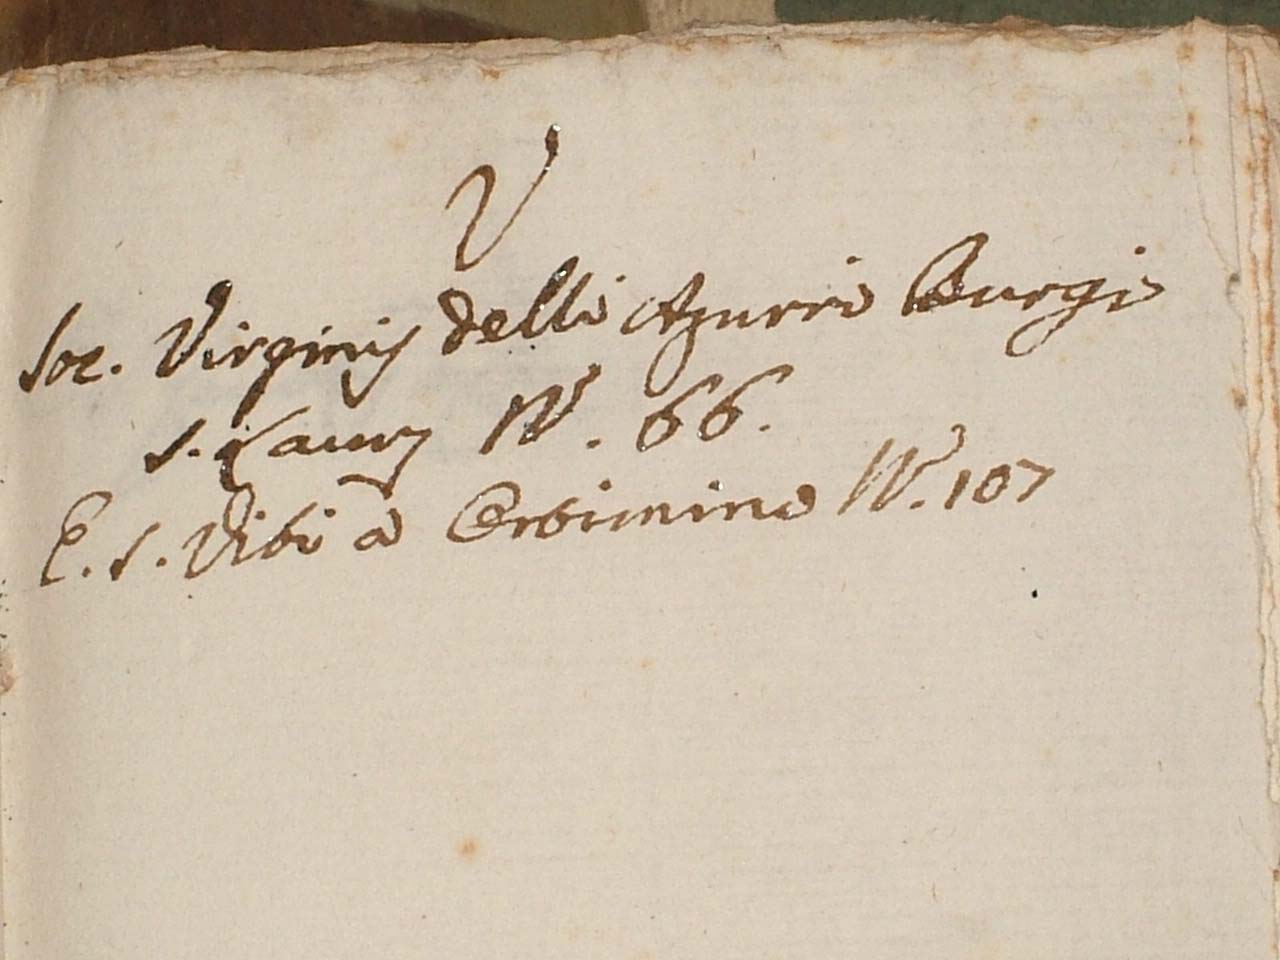 V
Soc. Virginis delli Azurri Burgi
S. Laurij N. 66.
E. S. Vibi à Orbimino N. 107